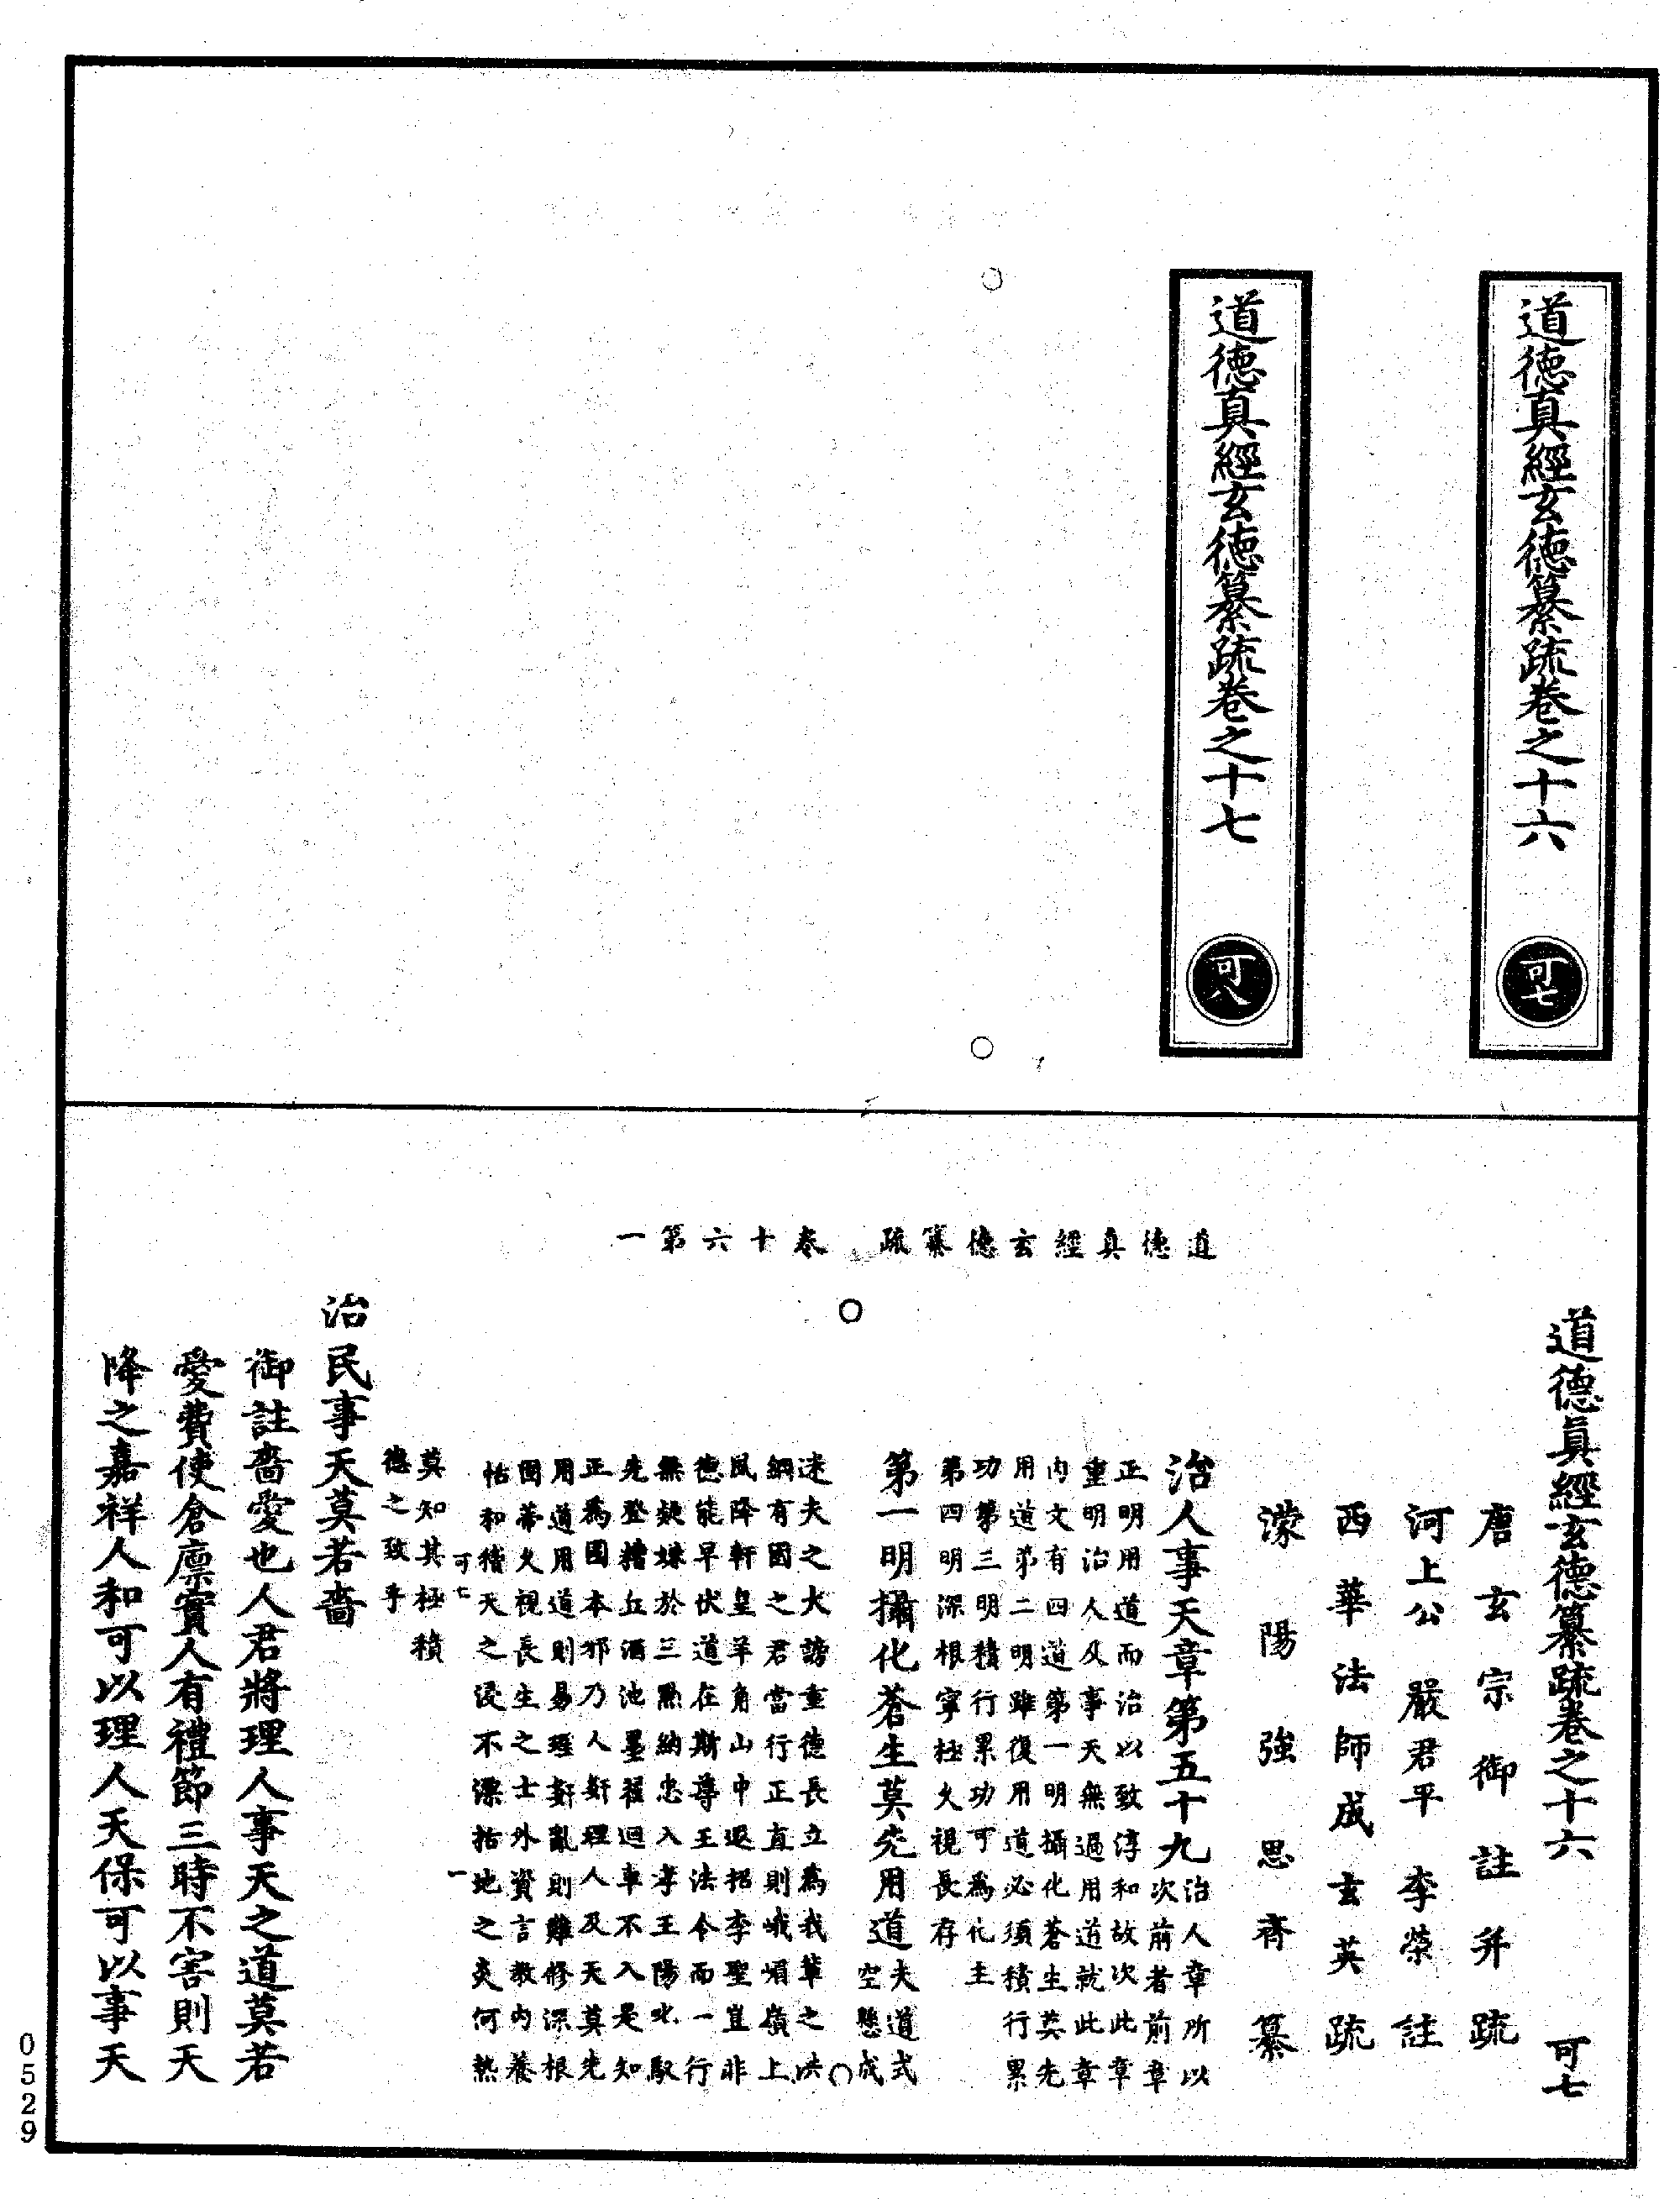 道德真經玄德纂疏卷之十六
可七
道德真經玄德纂疏卷之十七
可八
道德真經玄德纂疏 卷十六第一
道德眞經玄德纂疏卷之十六 可七
唐玄宗御註并疏
河上公 嚴君平 李榮註
西華法師成玄英疏
濛陽強思齊纂
治人事天章第五十九
治人章所以
次前者前章
正明用道而治以致淳和故次此章
重明治人及事天無過用道就此章
內文有四道第一明攝化蒼生莫先
用道第二明雖復用道必須積行累
功第三明積行累功可為化主
第四明深根寧極久視長存
第一明攝化蒼生莫先用道
夫道式
空懸成
迷夫之大謗重德長立為我輩之洪
綱有國之君當行正直則峨嵋嶺上
風降軒皇羊角山中遐招李聖豈非
德能早伏道在斯尊王法令而一行
無疑媿於三點納忠入孝王陽叱馭
先登糟丘酒池墨翟迴車不入是知
正為國本邪乃人姧理人及天莫先
用道用道則易理姧亂則難修深根
固蒂久視長生之士外資言教內養
怡和稽天之浸不漂括地之炎何熱
可七 一
莫知其極積
德之致乎
治民事天莫若嗇
御註嗇愛也人君將理人事天之道莫若
愛費使倉廩實人有禮節三時不害則天
降之嘉祥人和可以理人天保可以事天
0529